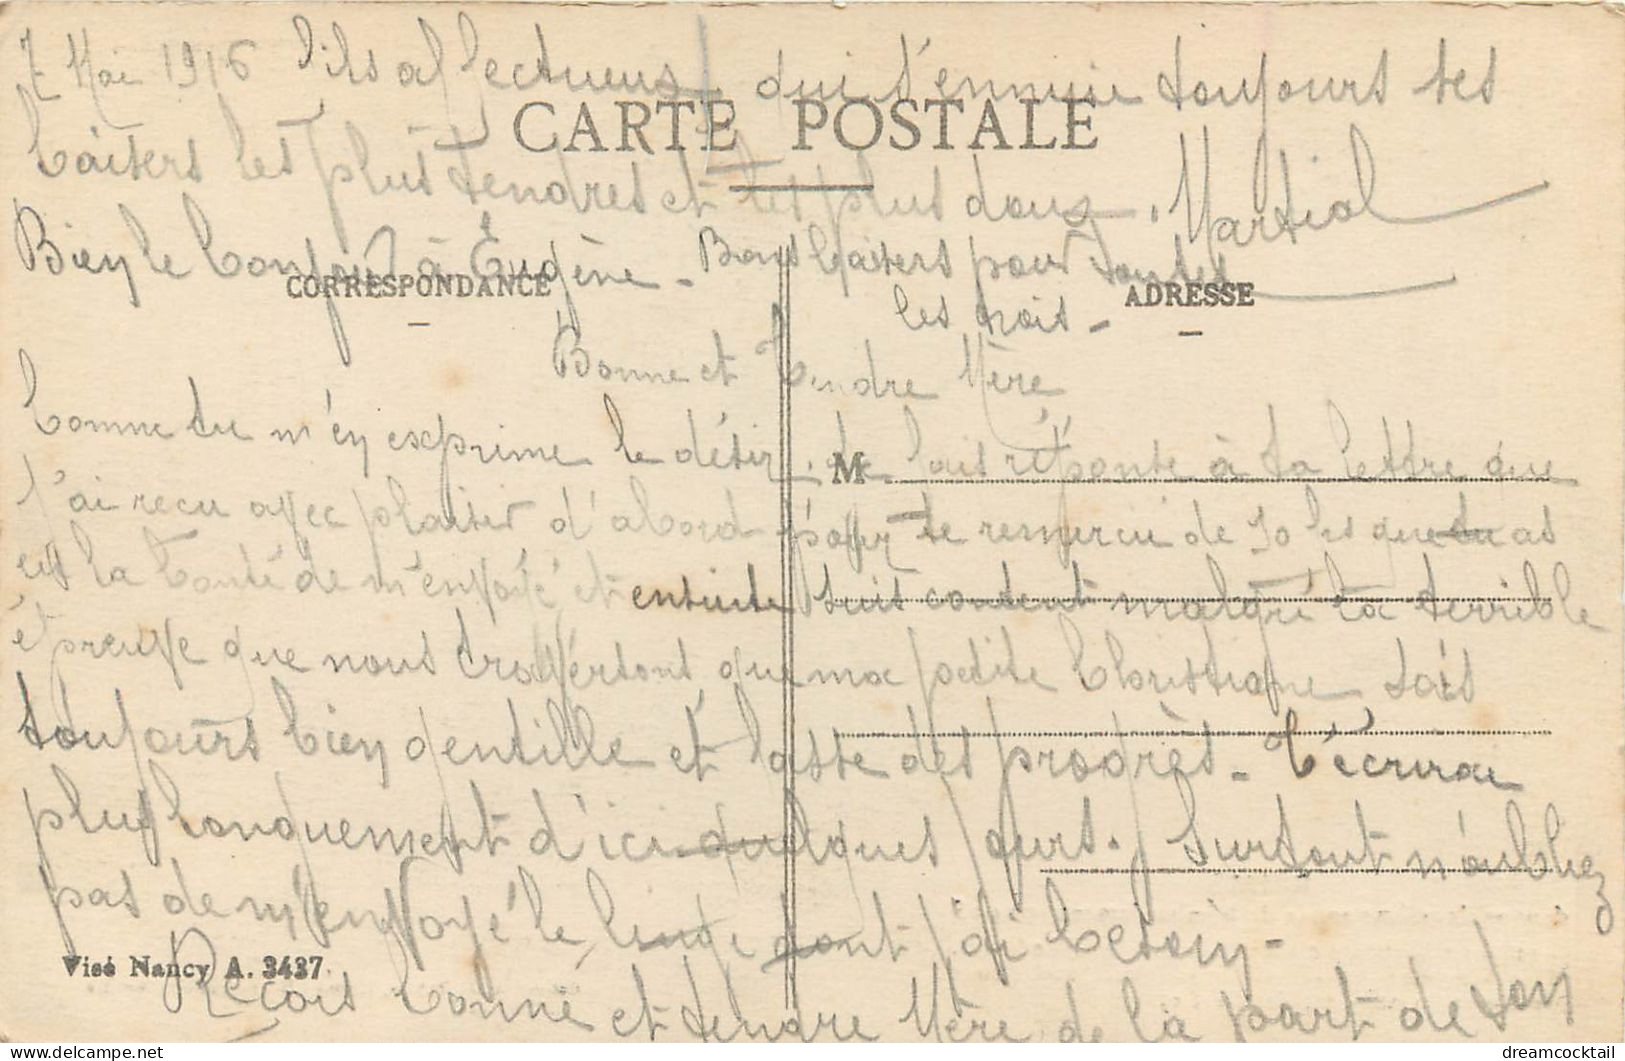 7 Mai 1916 fils affectueux qui s'ennuie toujours ses
CARTE POSTALE
baisers les plus tendres et les plus doux. Martial
Bien le bonjour à Eugène - Bons baisers pour toutes
CORRESPONDANCE
ADRESSE
les trois -
Bonne et tendre Mère
Comme tu m'en exprime le désir. Je fais réponse à ta lettre que
M
j'ai recu avec plaisir d'abord pour te remercie de 10 les que tu as
eus la bonté de m'envoyé et ensuite suis content malgré la terrible
épreuve que nous traversont que ma petite Christiane sois
toujours bien gentille et fasse des progrès - t'écrirai
plus longuement d'ici quelques jours. Surtout n'oubliez
pas de m'envoyé le linge dont j'ai besoin -
Visé Nancy A. 3437
Reçois bonne et tendre Mère de la part de ton
dreamcocktail